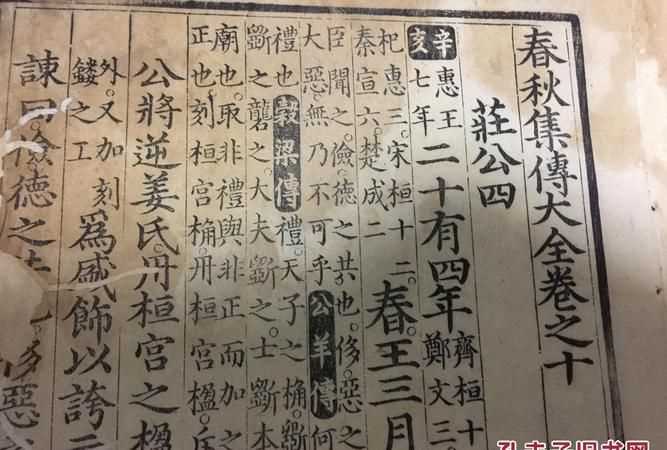 春秋集傳大全卷之十
莊公四
辛亥惠王七年二十有四年齊桓十鄭文三
杞惠三。宋桓十二。秦宣六。楚成二春。王三月
臣聞之。儉德之共也。侈惡之
大惡。無乃不可乎公羊傳何
禮也。穀梁傳禮。天子之桷。斲
斲之礱之。大夫斲之。士斲本
廟也。取非禮與非正而加之
正也。刻桓宮桷。丹桓宮楹。斥
公將逆姜氏。丹桓宮之楹
外。又加刻鏤之工爲盛飾以誇
諫曰。儉德之侈惡
孔夫子旧书网